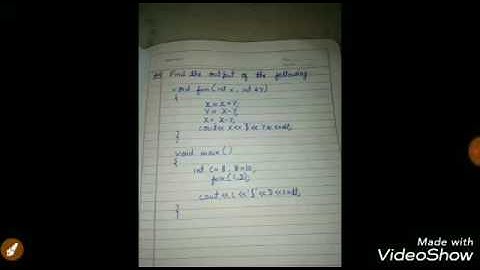 Find the output of the following
void fun (int x, int &y)
{
x = x+y;
y = x-y;
x = x-y;
cout<< x << '$' << y << endl;
}
void main ()
{
int C=8, D=10;
fun(C,D);
cout << C << '$' << D << endl;
}
Made with
VideoShow